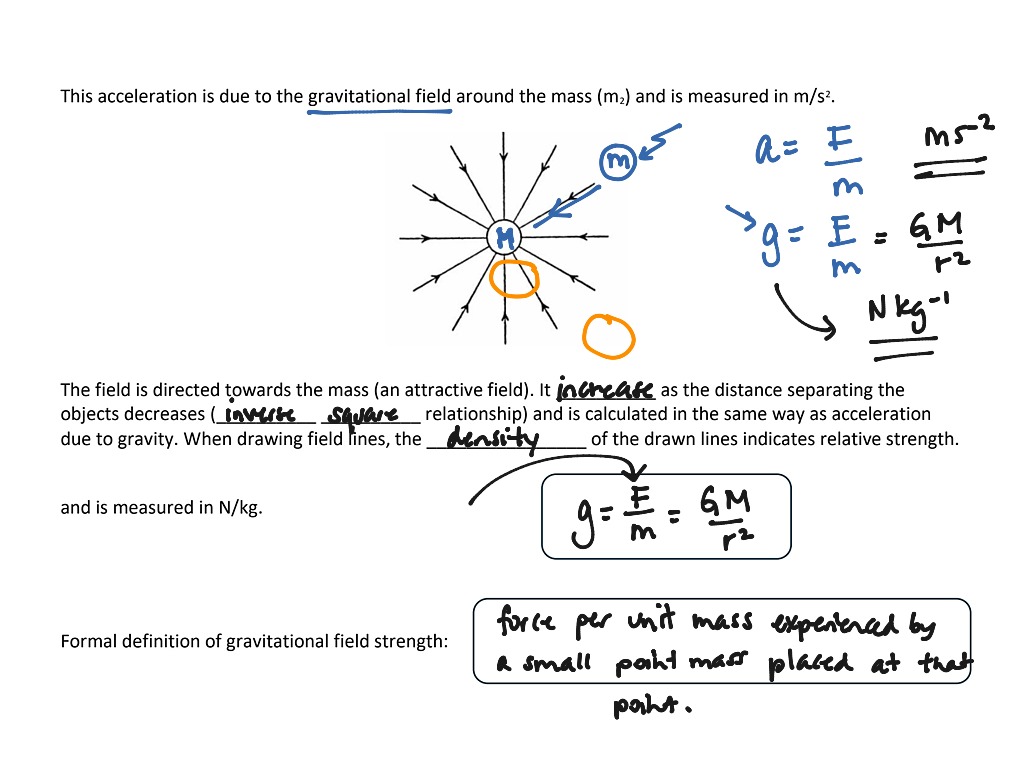 This acceleration is due to the gravitational field around the mass (m₂) and is measured in m/s².
a = F/m ms⁻²
m
M
g = F/m = GM/r²
N kg⁻¹
The field is directed towards the mass (an attractive field). It increase as the distance separating the
objects decreases (inverse square relationship) and is calculated in the same way as acceleration
due to gravity. When drawing field lines, the density of the drawn lines indicates relative strength.
and is measured in N/kg.
g = F/m = GM/r²
Formal definition of gravitational field strength:
force per unit mass experienced by
a small point mass placed at that
point.